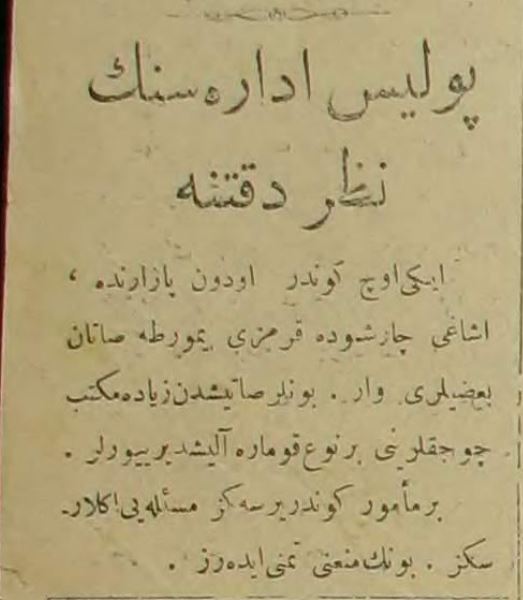 پولیس اداره‌سنك
نظر دقتنه
ایكی اوچ كوندر اودون پازارنده ،
اشاغی چارشوده قرمزی یمورطه صاتان
بعضیلری وار . بونلر صاتیشدن زیاده مكتب
چوجقلرینی برنوع قوماره آلیشدیرییورلر .
برمأمور كوندریرسه‌كز مسئله‌یی اكلار-
سكز . بونك منعنی تمنی ایده‌رز .